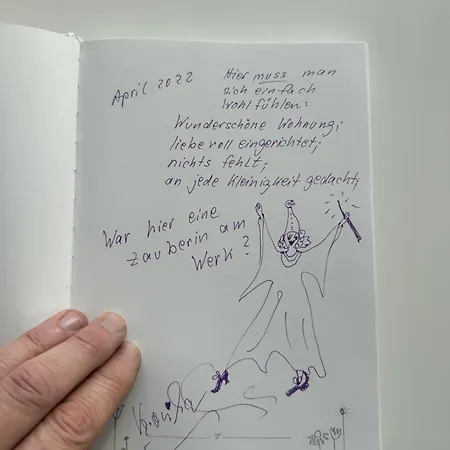 April 2022
Hier muss man
sich einfach
wohlfühlen:
Wunderschöne Wohnung;
liebevoll eingerichtet;
nichts fehlt;
an jede Kleinigkeit gedacht;
War hier eine
Zauberin am
Werk?